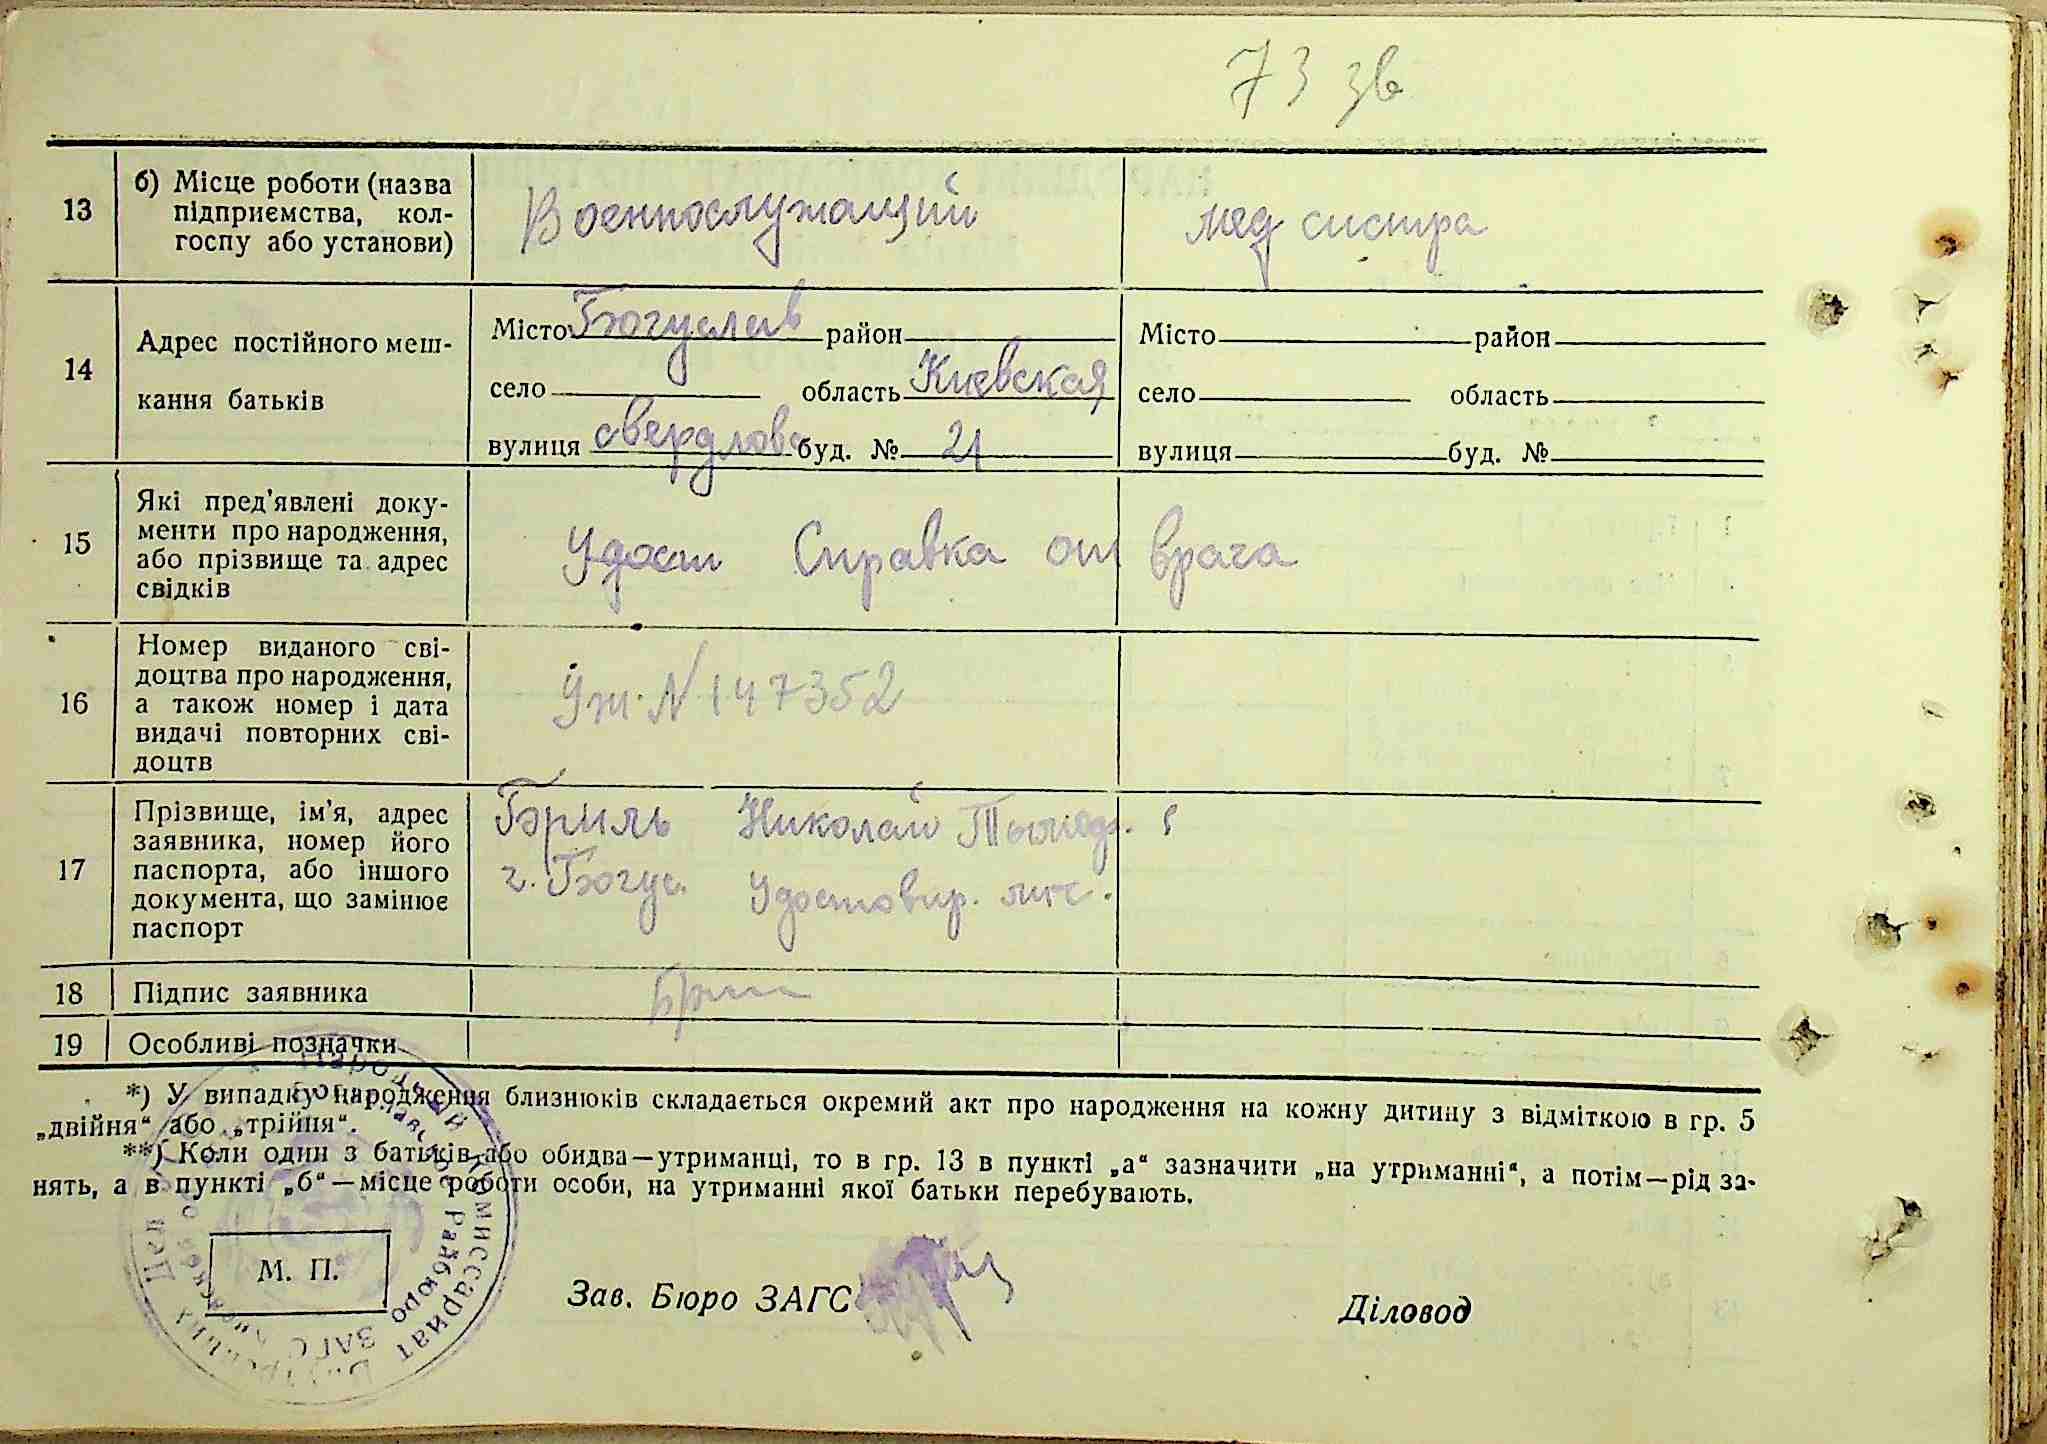 73 зв
13
б) Місце роботи (назва
підприємства, кол-
госпу або установи)
Военнослужащий
мед систра
14
Адрес постійного меш-
кання батьків
Місто Богуслав район
село область Киевская
вулиця свердлова буд. № 21
Місто район
село область
вулиця буд. №
15
Які пред'явлені доку-
менти про народження,
або прізвище та адрес
свідків
Удост Справка от врача
16
Номер виданого сві-
доцтва про народження,
а також номер і дата
видачі повторних сві-
доцтв
N 147352
17
Прізвище, ім'я, адрес
заявника, номер його
паспорта, або іншого
документа, що замінює
паспорт
Бриль Николай
г. Богус. Удостовир. лич.
18
Підпис заявника
19
Особливі позначки
*) У випадку народження близнюків складається окремий акт про народження на кожну дитину з відміткою в гр. 5
„двійня“ або „трійня“.
**) Коли один з батьків або обидва—утриманці, то в гр. 13 в пункті „а“ зазначити „на утриманні“, а потім—рід за-
нять, а в пункті „б“—місце роботи особи, на утриманні якої батьки перебувають.
Народный Комиссариат Внутренних Дел
Райбюро ЗАГС
М. П.
Зав. Бюро ЗАГС
Діловод